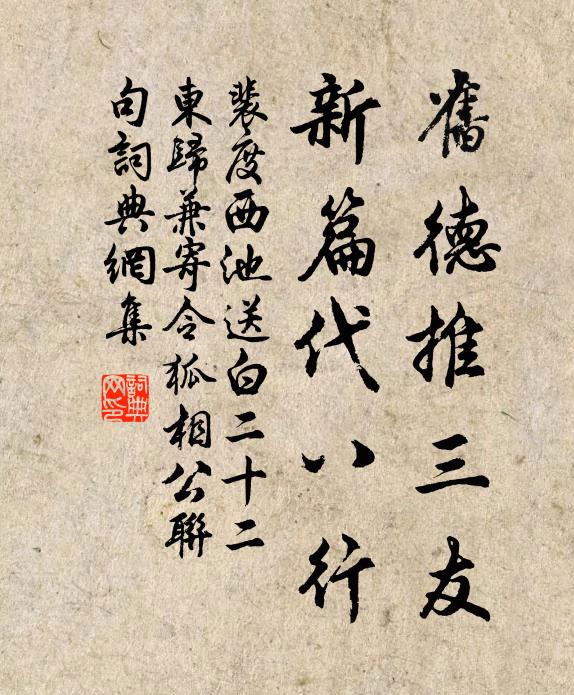 舊德推三友
新篇代八行
裴度西池送白二十二
東歸兼寄令狐相公聯
句詞典網集
詞典
网印